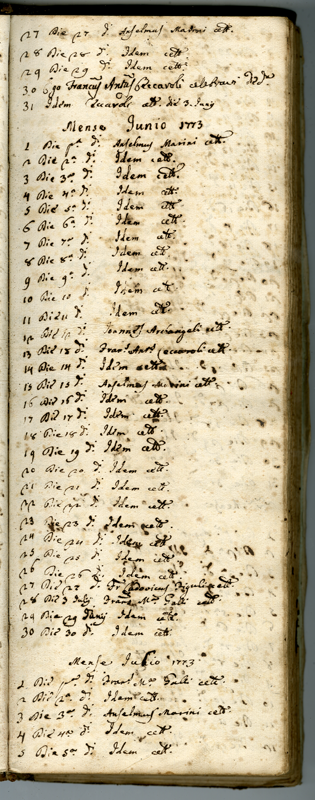 27 Die 27 dⁱ Anselmus Marini cett.
28 Die 28 dⁱ Idem cett.
29 Die 29 dⁱ Idem cett.
30 Ego Francus Antus Ceccaroli celebravi
31 Idem Ceccaroli cett. die 3. Junij
Mense Junio 1773
1 Die pᵃ dⁱ Anselmus Marini cett.
2 Die 2ᵃ dⁱ Idem cett.
3 Die 3ᵃ dⁱ Idem cett.
4 Die 4ᵃ dⁱ Idem cett.
5 Die 5ᵃ dⁱ Idem cett.
6 Die 6ᵃ dⁱ Idem cett.
7 Die 7ᵃ dⁱ Idem cett.
8 Die 8ᵃ dⁱ Idem cett.
9 Die 9ᵃ dⁱ Idem cett.
10 Die 10 dⁱ Idem cett.
11 Die 11 dⁱ Idem cett.
12 Die 12 dⁱ Joannes Archangeli cett.
13 Die 13 dⁱ Franc. Antˢ Ceccaroli cett.
14 Die 14 dⁱ Idem cett.
15 Die 15 dⁱ Anselmus Marini cett.
16 Die 16 dⁱ Idem cett.
17 Die 17 dⁱ Idem cett.
18 Die 18 dⁱ Idem cett.
19 Die 19 dⁱ Idem cett.
20 Die 20 dⁱ Idem cett.
21 Die 21 dⁱ Idem cett.
22 Die 22 dⁱ Idem cett.
23 Die 23 dⁱ Idem cett.
24 Die 24 dⁱ Idem cett.
25 Die 25 dⁱ Idem cett.
26 Die 26 dⁱ Idem cett.
27 Die 27 dⁱ Fr. Ludovicus cett.
28 Die 3 Julij Franc. Mᵃ Galli cett.
29 Die 29 Junij Idem cett.
30 Die 30 dⁱ Idem cett.
Mense Julio 1773
1 Die pᵃ dⁱ Francˢ Mᵃ Galli cett.
2 Die 2ᵃ dⁱ Idem cett.
3 Die 3ᵃ dⁱ Anselmus Marini cett.
4 Die 4ᵃ dⁱ Idem cett.
5 Die 5ᵃ dⁱ Idem cett.